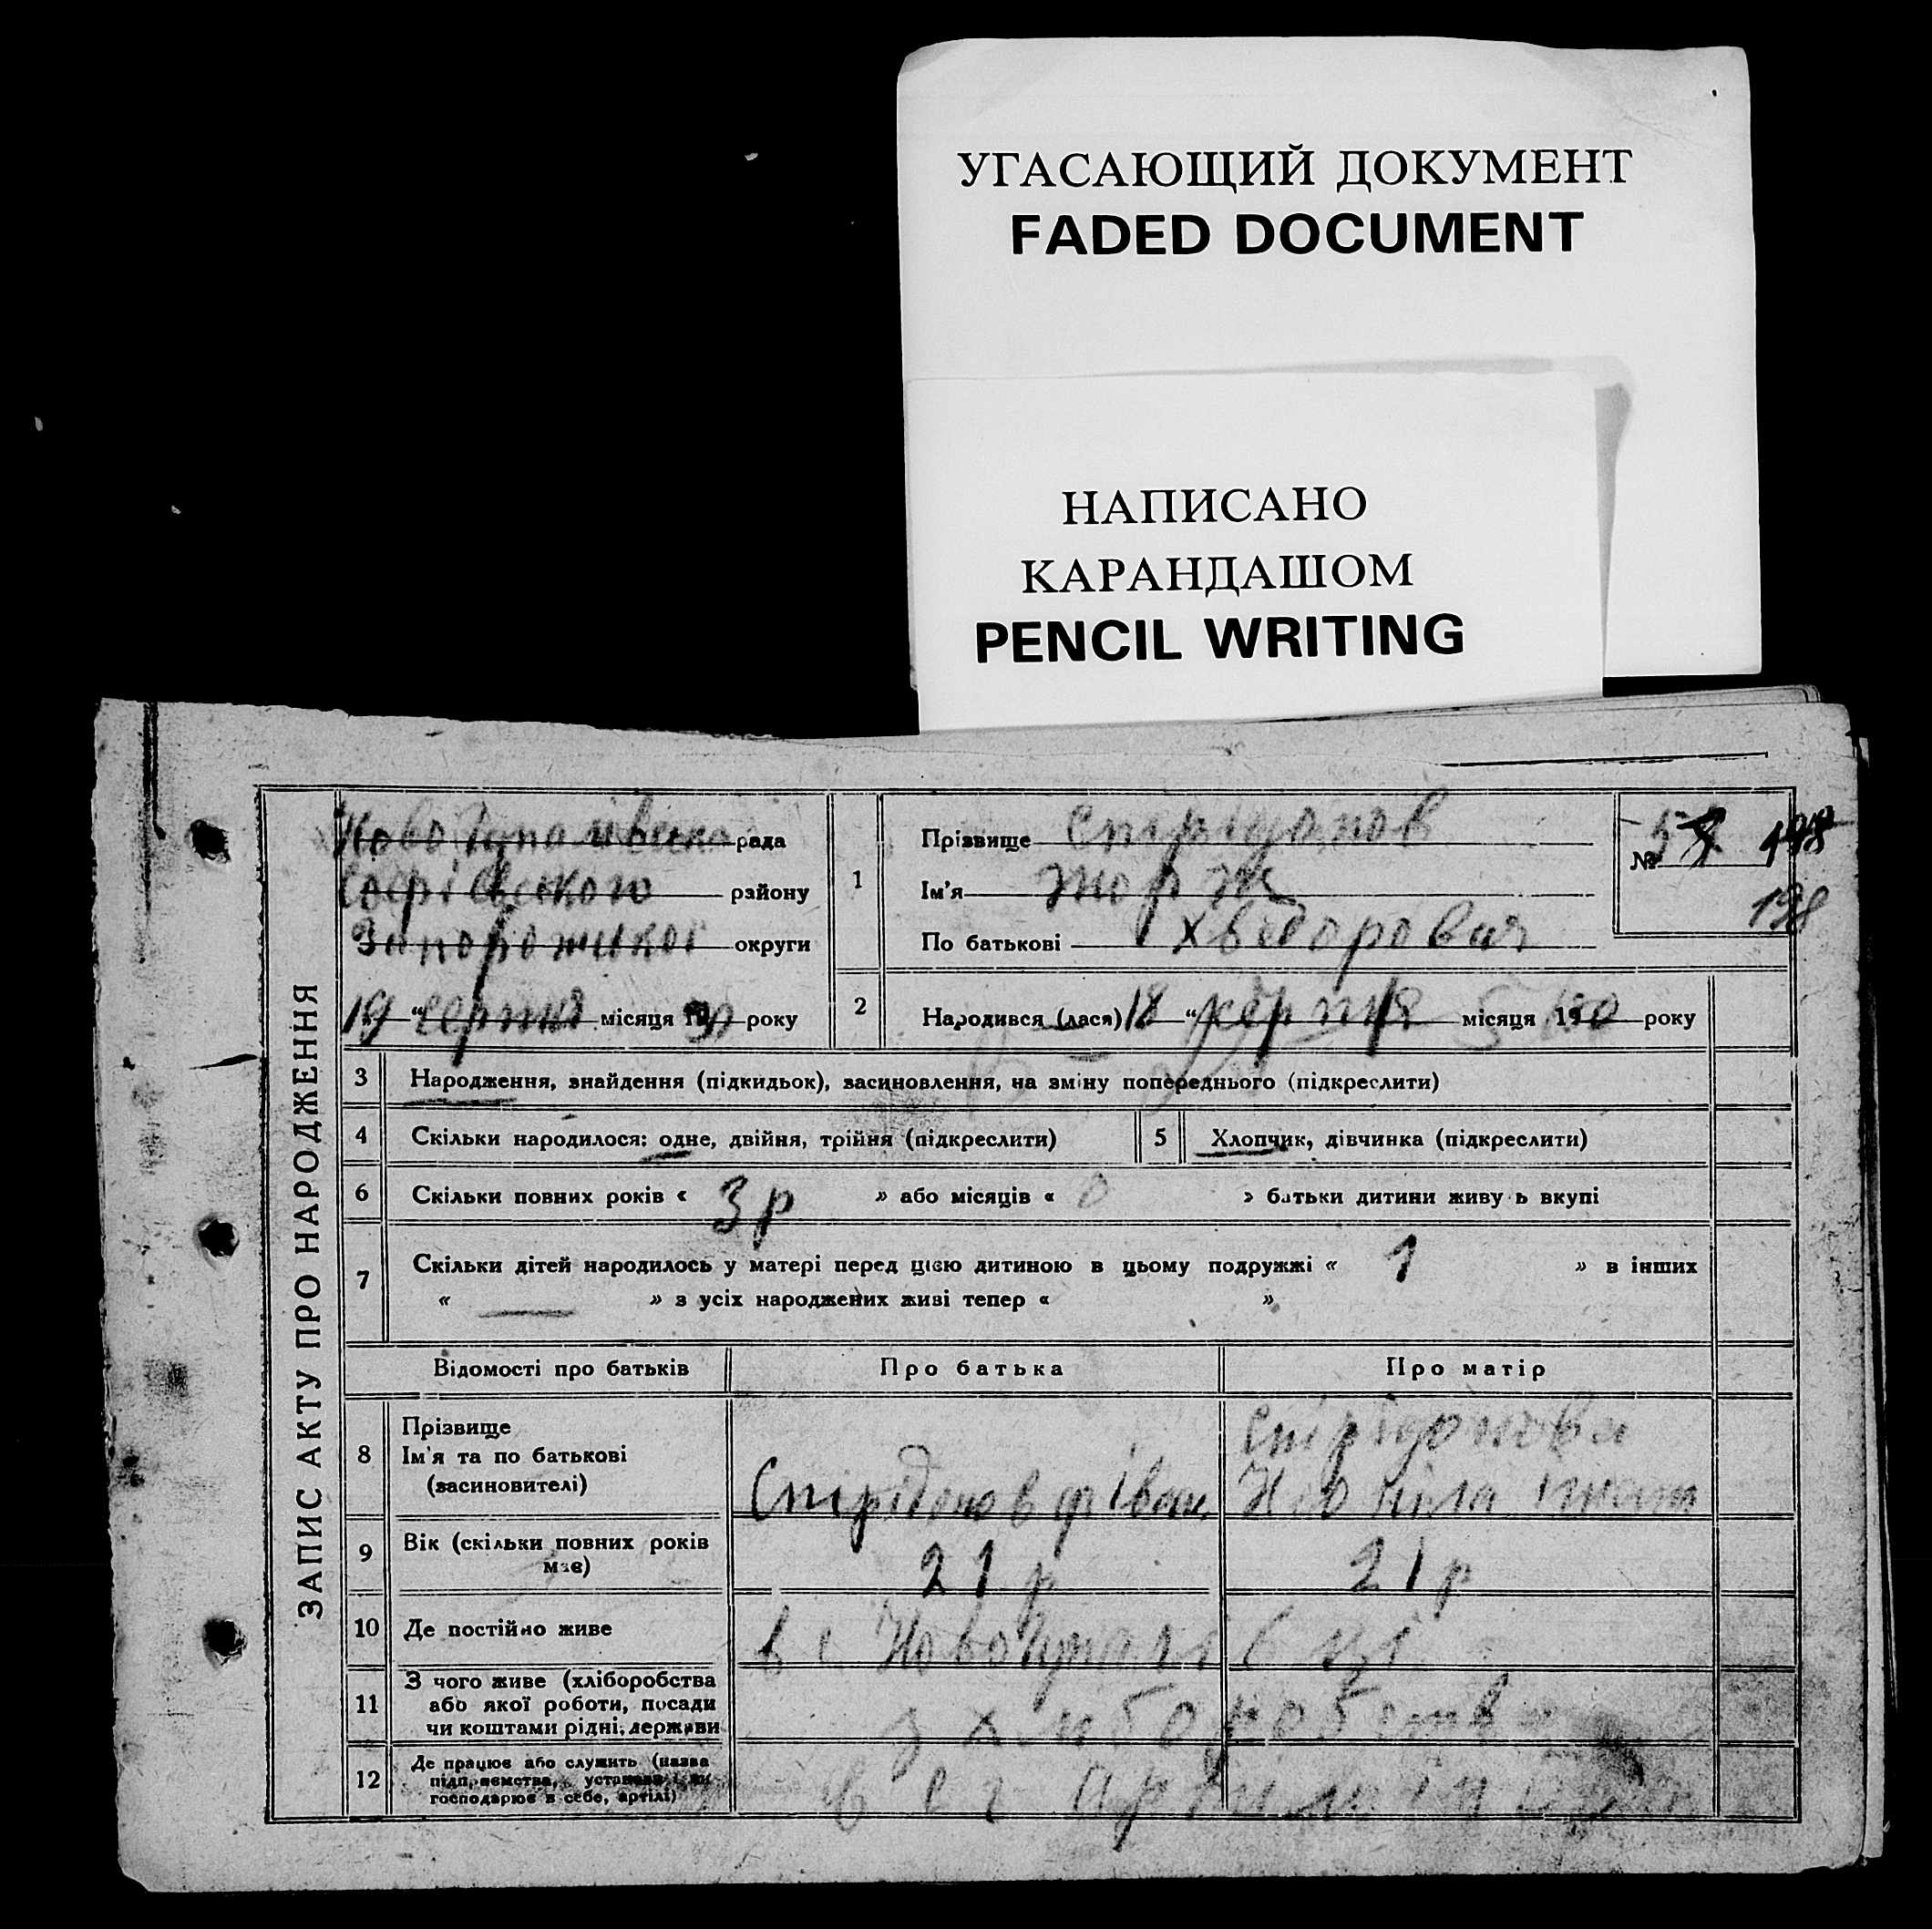 УГАСАЮЩИЙ ДОКУМЕНТ
FADED DOCUMENT
НАПИСАНО
КАРАНДАШОМ
PENCIL WRITING
ЗАПИС АКТУ ПРО НАРОДЖЕННЯ
рада
району
округи
19 " серпня місяця 1930 року
1
Прізвище Спірідонов
Ім'я Жорж
По батькові Хведорович
№ 198
198
2
Народився (лася) 18 " серпня місяця 1930 року
3 Народження, знайдення (підкидьок), засиновлення, на зміну попереднього (підкреслити)
4 Скільки народилося: одне, двійня, трійня (підкреслити)
5 Хлопчик, дівчинка (підкреслити)
6 Скільки повних років « 3 р » або місяців « 0 » батьки дитини живуть вкупі
7 Скільки дітей народилось у матері перед цією дитиною в цьому подружжі « 1 » в інших
« — » з усіх народжених живі тепер « »
Відомості про батьків Про батька Про матір
8 Прізвище
Ім'я та по батькові
(засиновителі)
Спірідонов
Спірідонова
9 Вік (скільки повних років
має)
21 р
21 р
10 Де постійно живе
в с
11 З чого живе (хліборобства
або якої роботи, посади
чи коштами рідні, держави
з хліборобства
12 Де працює або служить (назва
підприємства, установи чи
господарює в себе, артілі)